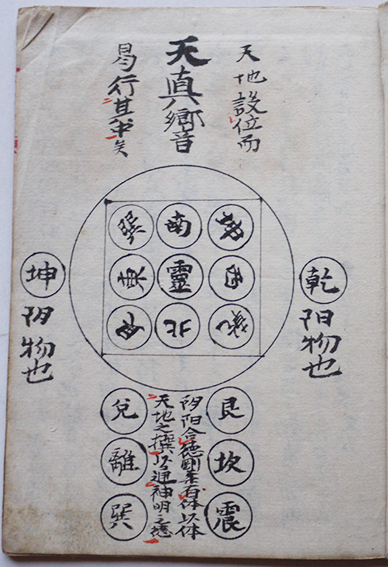 天地設位而
天真郷音
易行其中矣
乾
阳物也
西
南
靈
北
巽
東
艮
坤
阴物也
艮
坎
震
阴阳合德剛柔有体以体
天地之撰以通神明之德
兌
離
巽